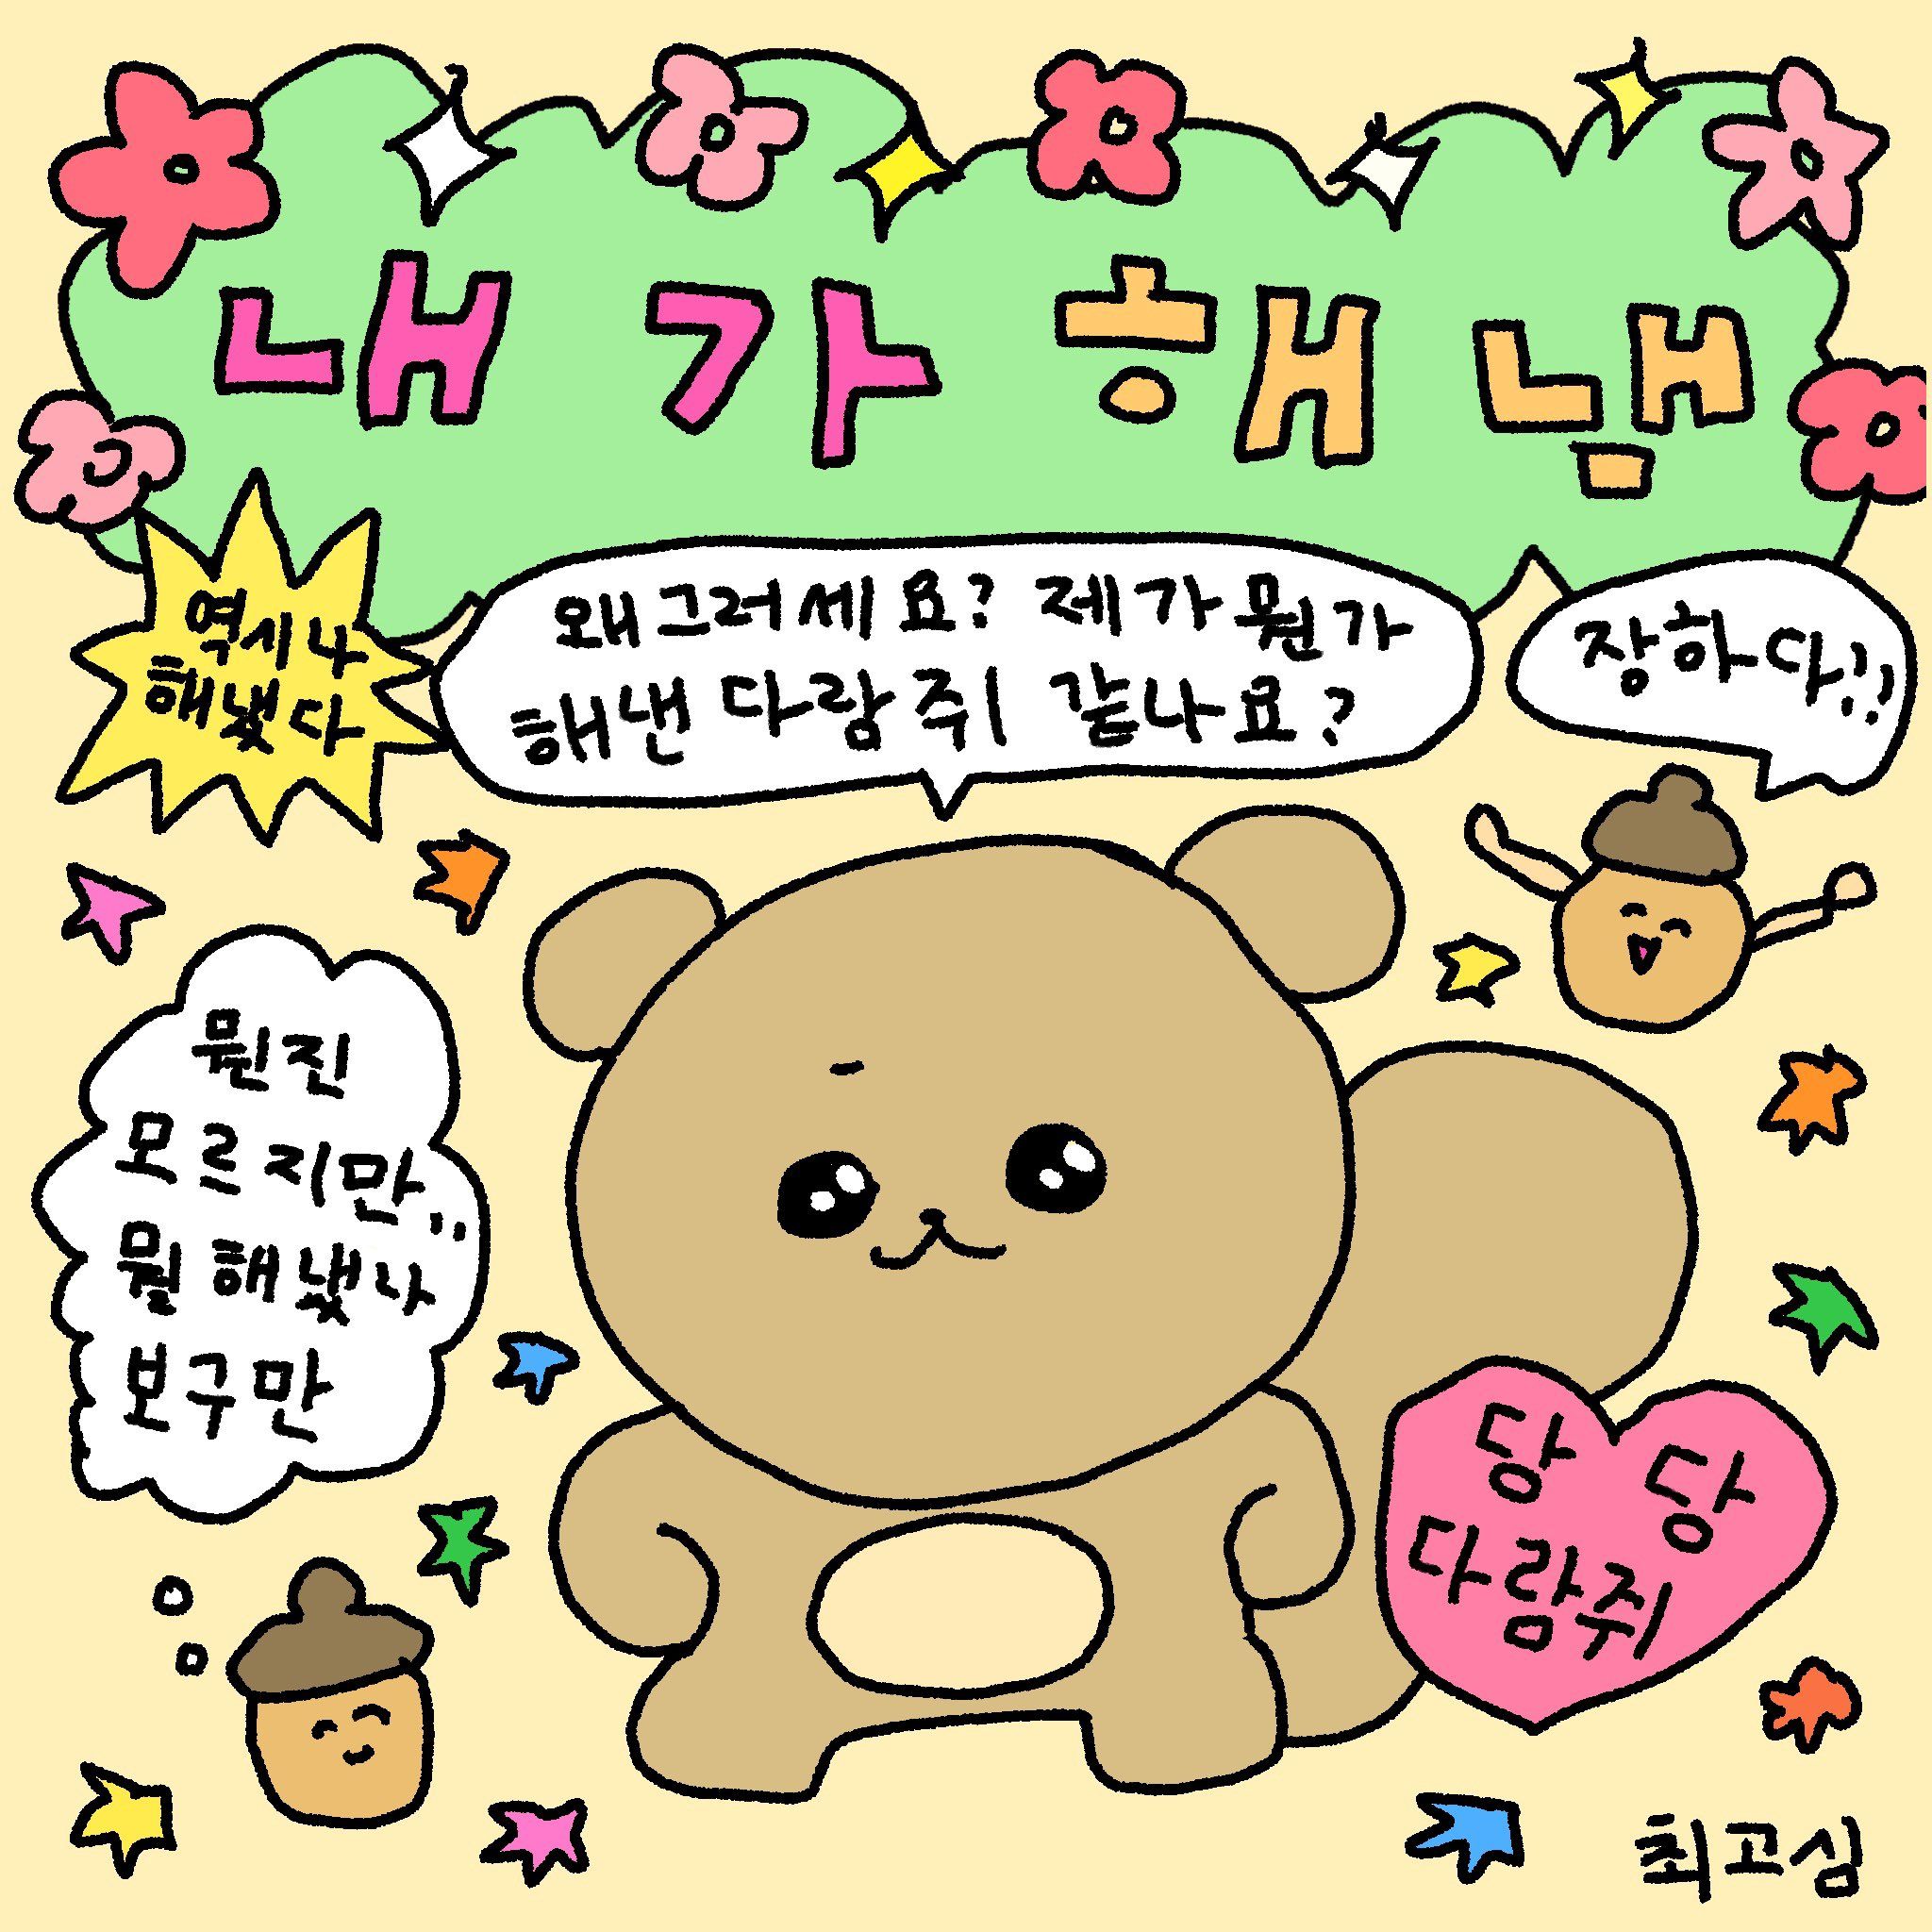 내가해낸
역시나
해냈다
왜그러세요? 제가뭔가
해낸 다람쥐 같나요?
장하다!!
뭔진
모르지만,,
뭘 해냈나
보구만
당당
다람쥐
최고심